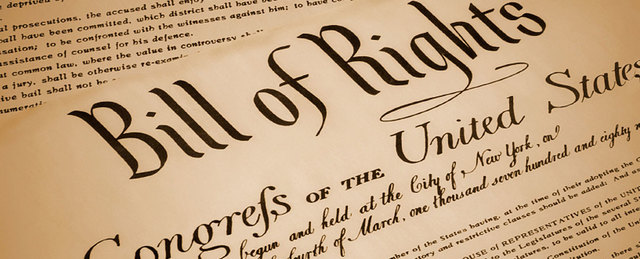 al prosecutions, the accused shall enjoy
all have been committed, which district shall have be
sation; to be confronted with the witnesses against him; to have co
assistance of counsel for his defence.
at common law, where the value in controversy shall
a jury, shall be otherwise re-exami
ive bail shall not be
numerati
Bill of Rights
Congreſs OF THE United States
begun and held at the City of New York, on
fourth of March, one thousand seven hundred and eighty n
mber of the States having, at the time of their adopting the
atory and restrictive clauses should be added: And as
OUSE OF REPRESENTATIVES of the UNI
to the Legislatures of the several S
es, to be valid to all inte
Constitution of the